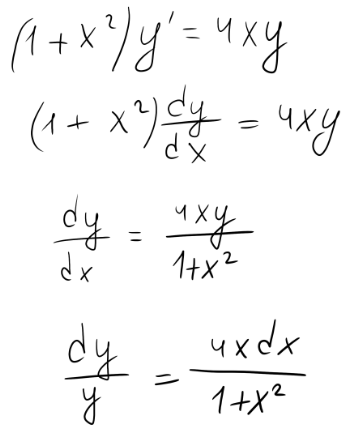 (1+x²)y' = 4xy
(1+ x²) dy/dx = 4xy
dy/dx = 4xy/1+x²
dy/y = 4xdx/1+x²